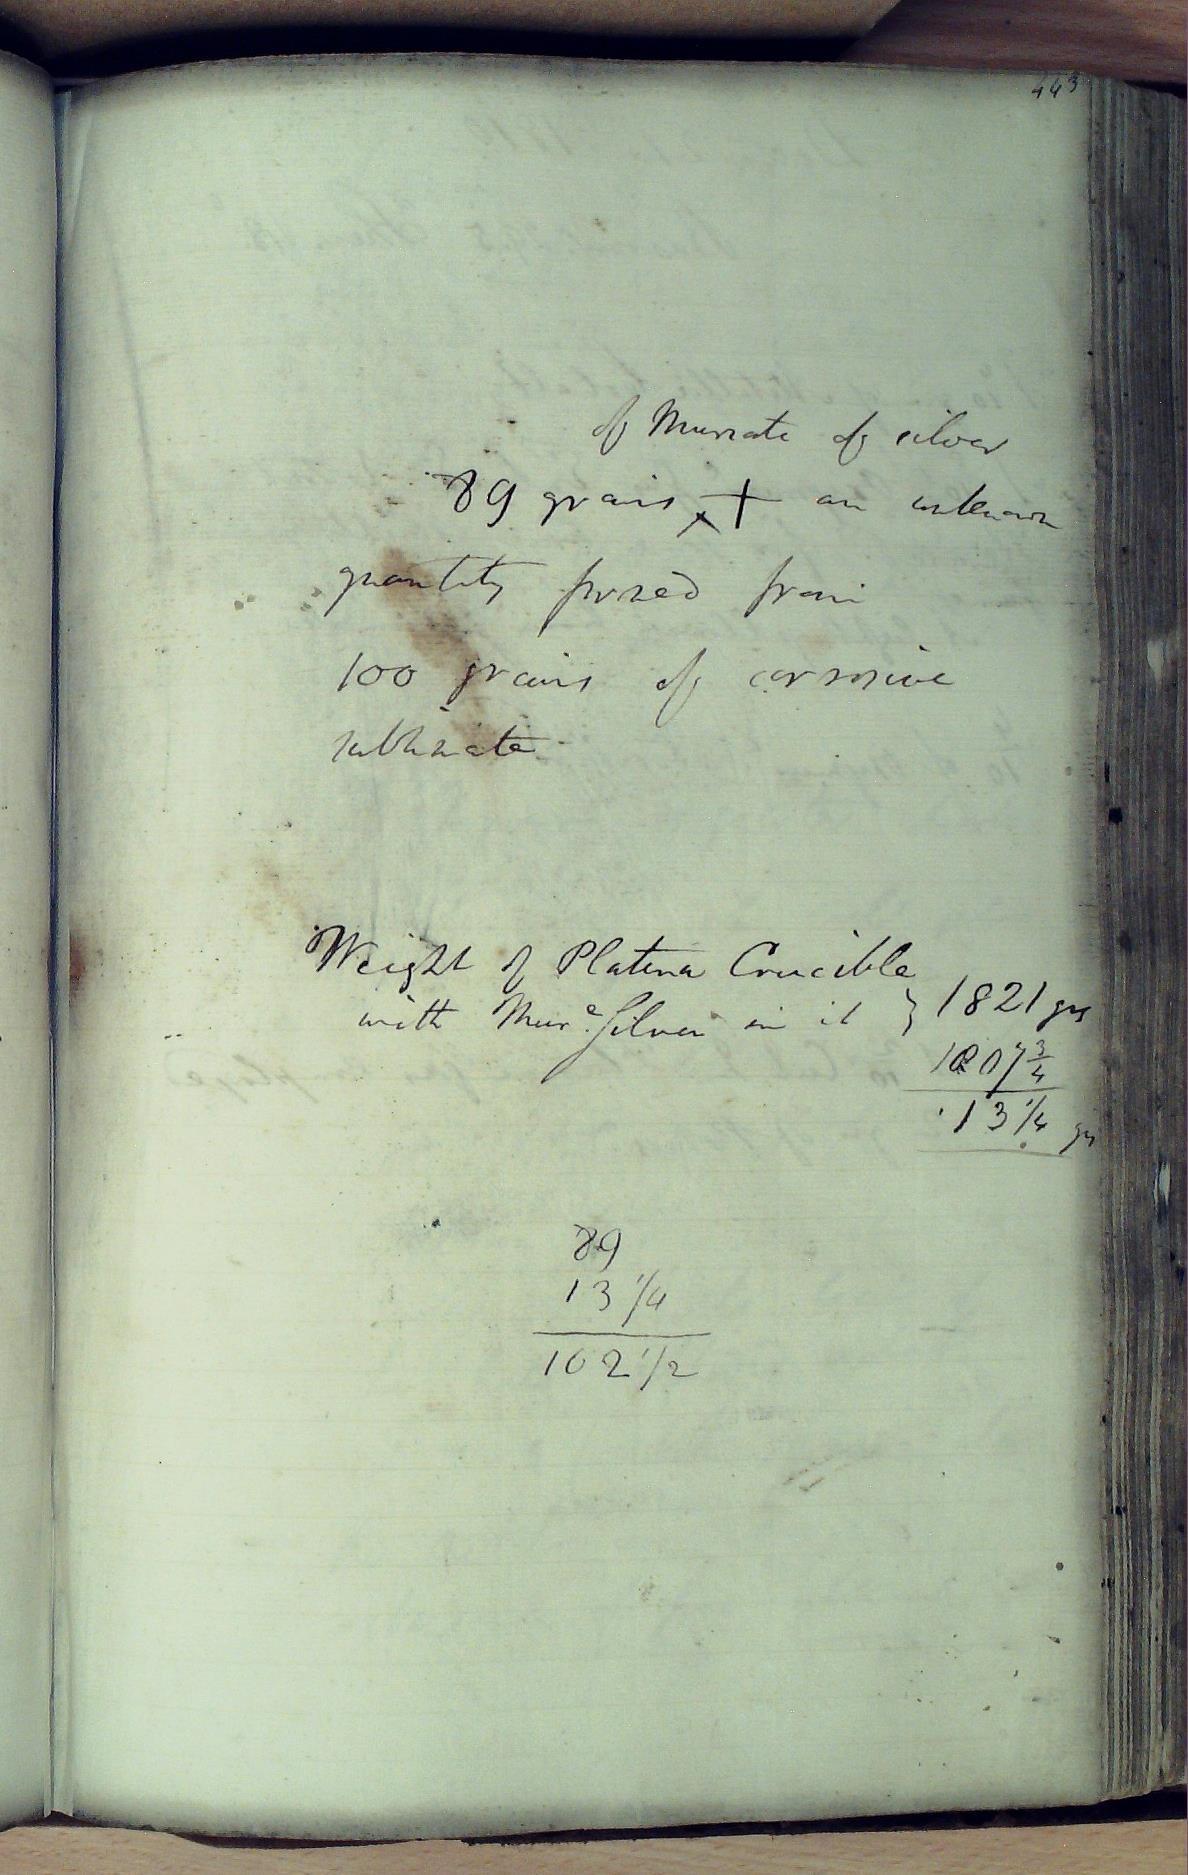 443
of Muriate of silver
89 grains + an unknown
quantity formed from
100 grains of corrosive
sublimate
Weight of Platina Crucible
with Murᵉ Silver in it } 1821 grs
1807 3/4
13 1/4 grs
89
13 1/4
102 1/2